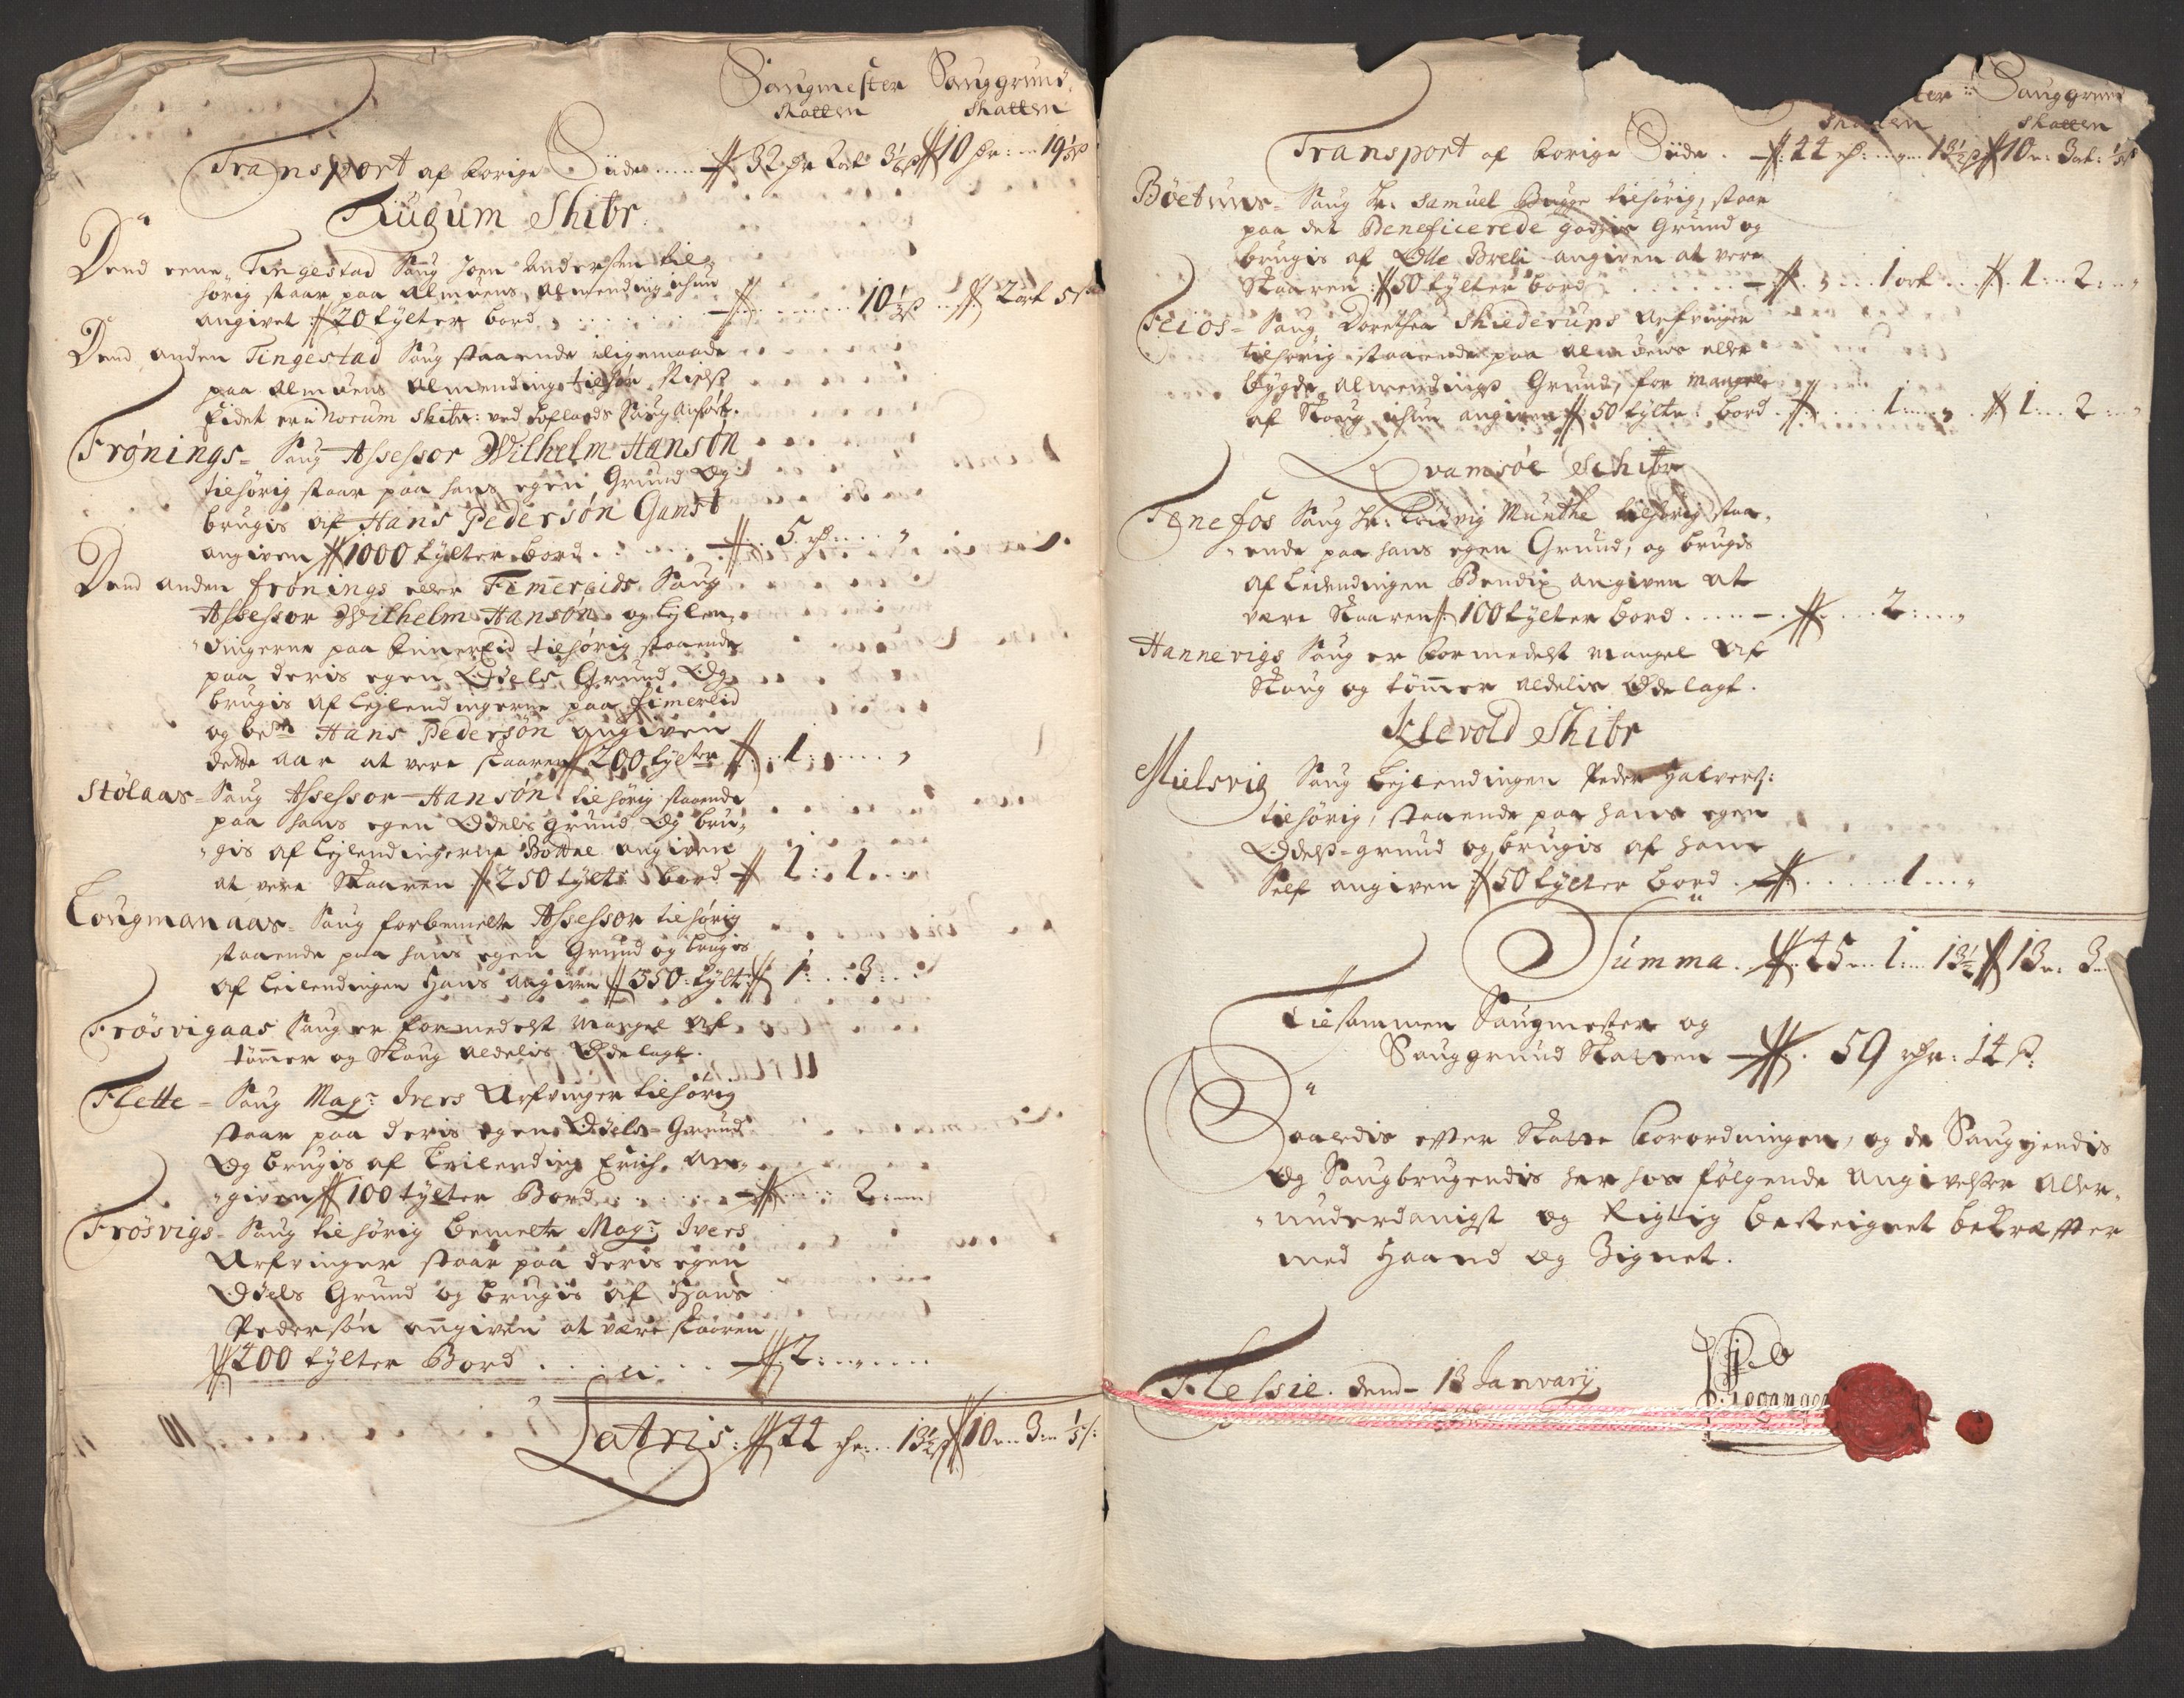 Saugmester Sauggrund
Skatten Skatten
Transport af forige Siide ..... 32 rdr 2 ort 3½ ß 10 rdr: 19⅕ ß
Augum Skibr
Dend eene Tingestad Saug Joen Andersen til
hørig staar paa Almuens Almending ichun
angivet 70 tylter bord ....... 10½ ß .. 2 ort 5
Dend anden Tingestad Saug staaende i ligemaade
paa Almuens Almending tilhør
findet er i Norum Skibr: ved Saug anført.
Frønings- Saug Assessor Wilhelm Hansøn
tilhørig staar paa hans egen Grund Og
brugis af Hans Pedersøn Gamst
angiven 1000 tylter bord ...... 5 rd: .. „
Dend anden Frønings eller Fimereids Saug
Assessor Wilhelm Hansøn og Lejlen-
dingerne paa Fimereid tilhørig staaende
paa deris egen Odels Grund Og
brugis af Lejlendingerne paa Fimereid
og bemte Hans Pedersøn angiven
dette aar at vere skaaren 200 tylter .. 1: ..... „
Stølaas- Saug Assessor Hansøn tilhørig staaende
paa hans egen Odels grund Og bru-
gis af Lejlendingerne Bottne angiven
at vere Skaaren 250 tylt: bord 1: 1 ...
Lougmanaas- Saug forbemelte Assessor tilhørig
staaende paa hans egen Grund og brugis
af Leilendingen Hans angiven 350 tylt: 1: .. 3: ..
Frøsvigaas Saug er formedelst Mangel af
tømmer og Skoug aldelis Ødelagt.
Flette - Saug Magr: Ivers Arfvinger tilhørig
staar paa deris egen Odels-Grund
Og brugis af Leilending Erich. an-
given 100 tylter Bord ....... 2: ....
Frøsvigs- Saug tilhørig bemelte Magr: Ivers
Arfvinger staar paa deris egen
Odels Grund og brugis af Hans
Pedersøn angiven at være skaaren
400 tylter Bord ........ 2: .......
Latris: 44 rdr: .. 13½ ß 10 .. 3 .. ⅕ ß:
Sauggrund
Skatten Skatten
Transport af forige Siide . 44 rd: ... 13½ ß 10 r: 3 ort: ⅕ ß
Bøetuns- Saug Hr: Samuel Bugge tilhørig, staar
paa det Beneficerede godzis Grund og
brugis af Otte Breli angiven at vere
Skaaren 50 tylter bord ...... „ ... 1 ort ... 1: .. 2: .. „
Feios- Saug Dorethea Skiederups Arfvinger
tilhørig staaende paa Almuens eller
bygde Almendings Grund, for Mangel
af Skoug ichun angiven 50 tylter bord ...... 1 .... „ . 1: .. 2: .. „
Qvamsøe Schibr
Tenefos Saug Hr: Ludvig Munthe tilhørig staa-
ende paa hans egen Grund, og brugis
af Leilendingen Bendix angiven at
være Skaaren 100 tylter bord ........ 2: ... „
Hannevigs Saug er formedelst Mangel af
Skoug og tømmer aldelis Ødelagt.
Klevold Skibr
Mielsvig Saug Lejlendingen Peder Halvers:
tilhørig, staaende paa hans egen
Odels-grund og brugis af ham
Self angiven 50 tylter bord ........ 1 ... „
Summa. 45 .. 1: .. 13½ 13 .. 3 ..
Tilsammen Saugmester og
Sauggrund Skatten . 59 rdr: 14 ß:
Saaledis efter Skatte forordningen, og de Saugejendis
og Saugbrugendis her hos følgende Angivelser Aller-
underdanigst og Rigtig besteignet bekræfter
med Haand og Zignet.
Flessie. dend 13 January